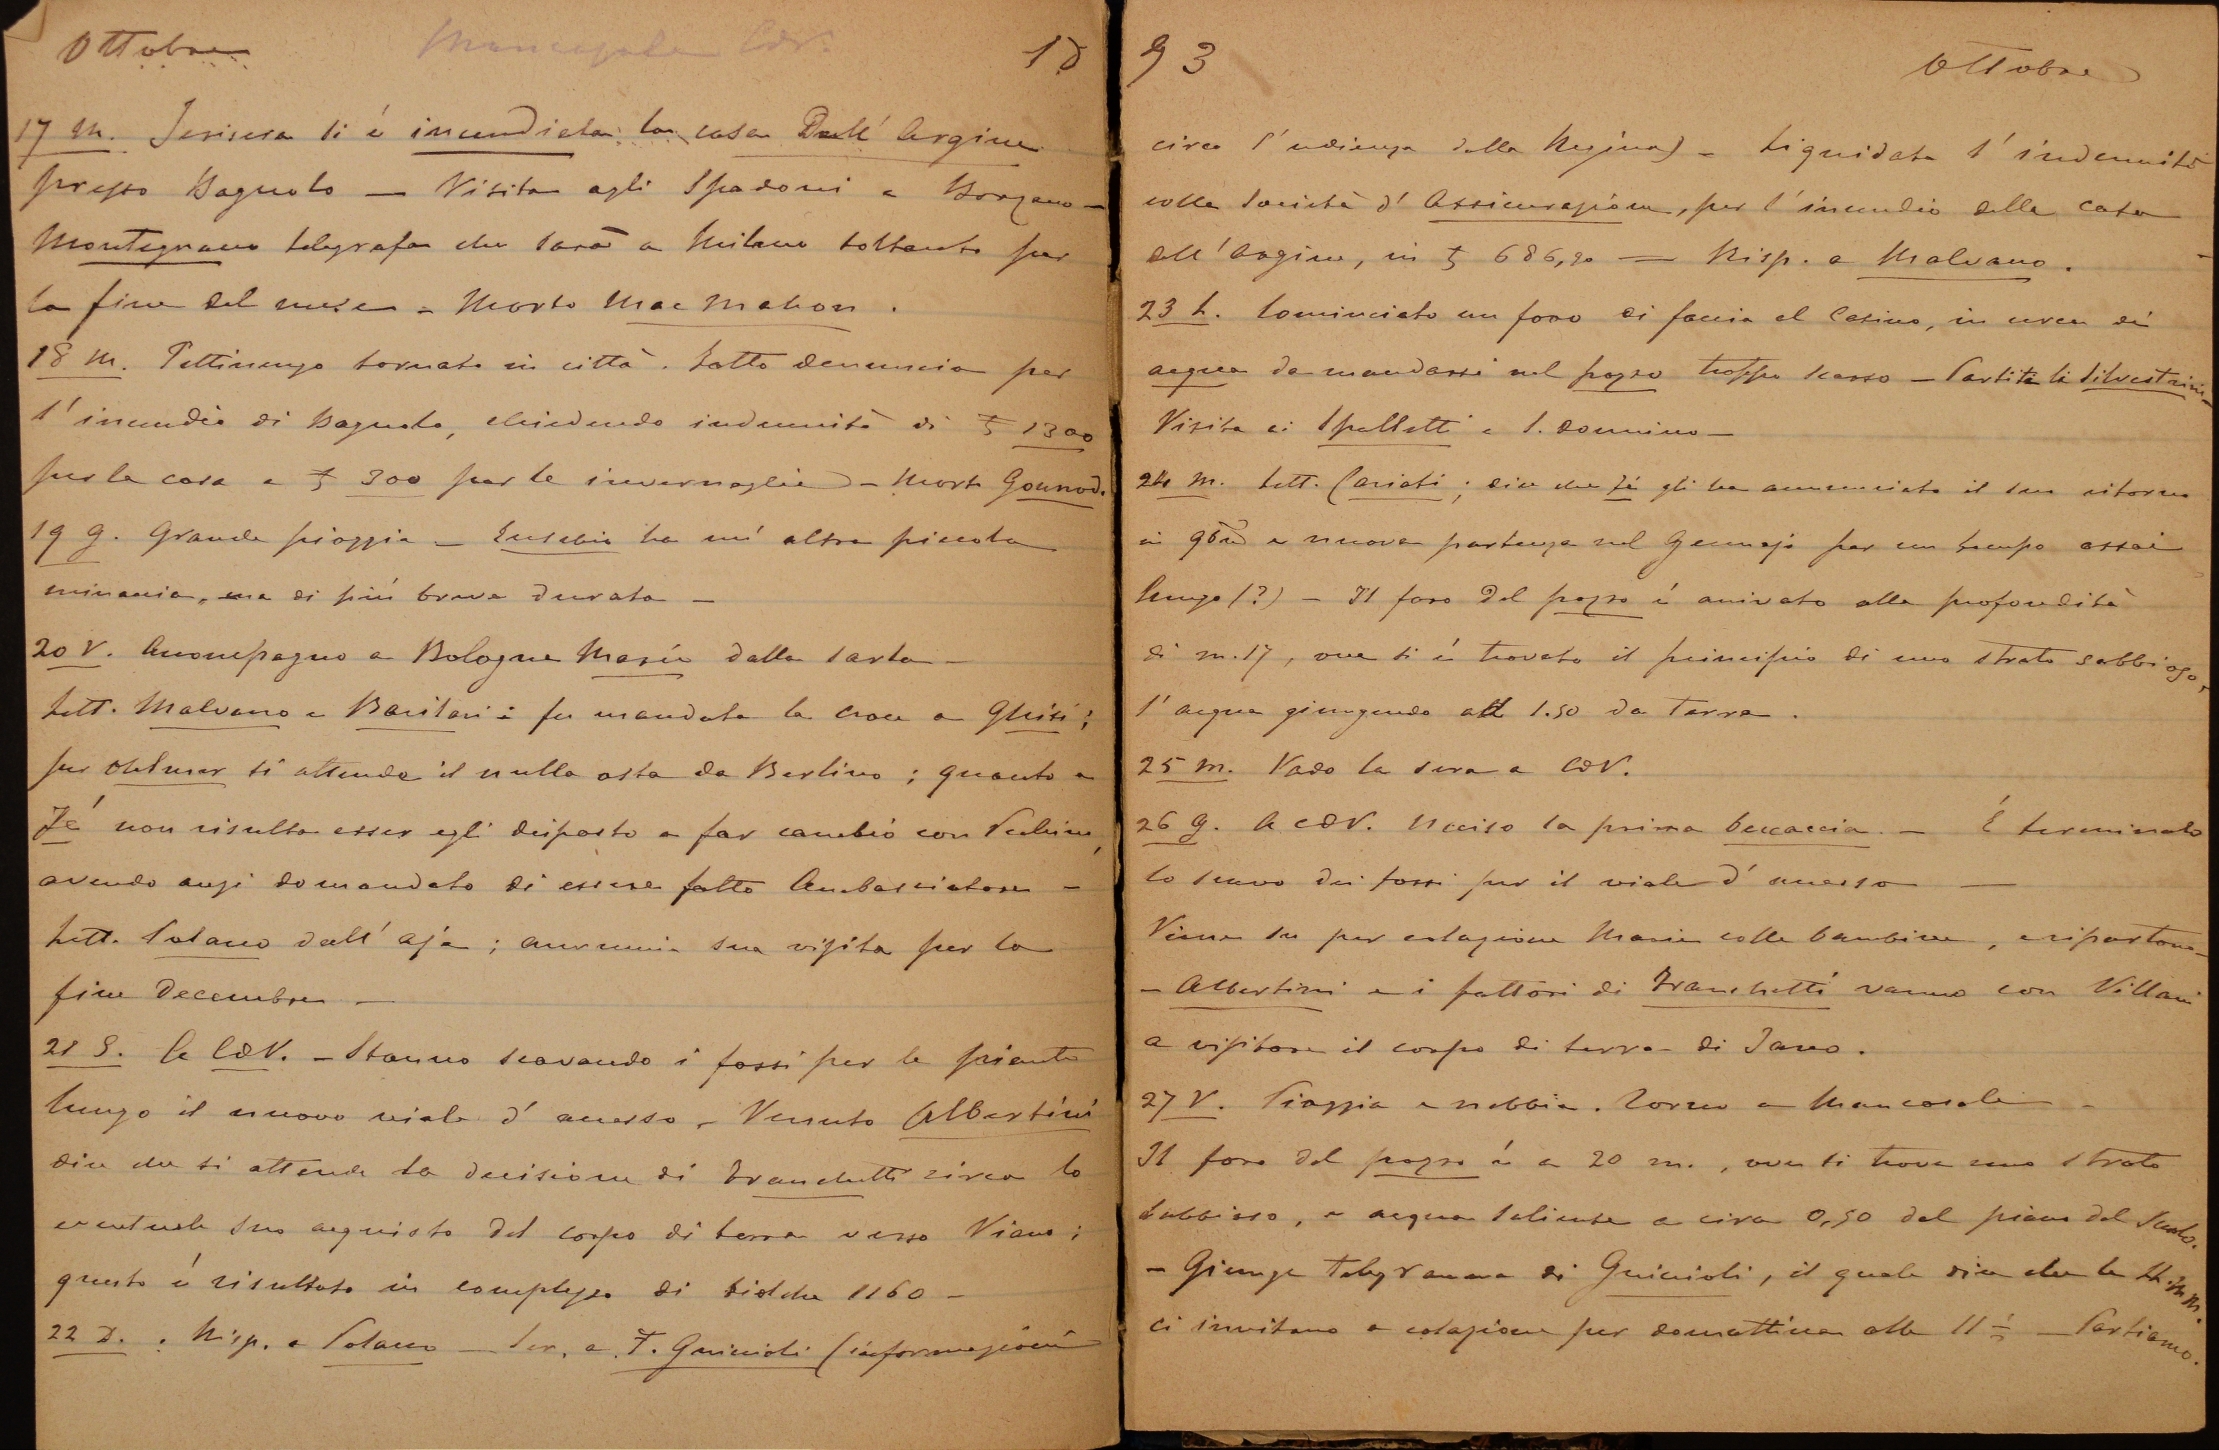 Ottobre Mancasale CdV. 18
17 M. Jersera si è incendiata la casa Dall'Argine
presso Bagnolo — Visita agli Spadoni a Borzano —
Montegnano telegrafa che sarà a Milano soltanto per
la fine del mese — Morto Mac Mahon.
18 M. Pettinengo tornato in città. Fatto denuncia per
l'incendio di Bagnolo, chiedendo indennità di £ 1300
per la casa e £ 300 per le invernaglie — Morto Gounod.
19 G. Grande pioggia — Eusebio ha un'altra piccola
minaccia, ma di più breve durata —
20 V. Accompagno a Bologna Maria dalla sarta —
Lett. Malvano e Barilari: fu mandata la croce a Ghisi;
per si attende il nulla osta da Berlino; quanto a
Fé non risulta esser egli disposto a far cambio con
avendo anzi domandato di essere fatto Ambasciatore —
Lett. Solano dall'Aja; annuncia sua visita per la
fine Decembre —
21 S. A CdV. — Stanno scavando i fossi per le piante
lungo il nuovo viale d'accesso — Venuto Albertini
dice che si attende la decisione di Franchetti circa lo
eventuale suo acquisto del corpo di terra verso Viano;
questo è risultato in complesso di biolche 1160 —
22 D. Risp. a Solano — Scr. a F. Guiccioli (informazioni
93 Ottobre
circa l'udienza della Regina) — Liquidata l'indennità
colla Società d'Assicurazione, per l'incendio della casa
dell'Argine, in £ 686,20 — Risp. a Malvano.
23 L. Cominciato un foro di faccia al Casino, in cerca di
acqua da mandarsi nel pozzo troppo scarso — Partiti li Silvestrini —
Visita ai Spalletti a S. Donnino —
24 M. Lett. Cariati; dice che Fé gli ha annunciato il suo ritorno
in 9bre e nuova partenza nel Gennajo per un tempo assai
lungo (?) — Il foro del pozzo è arrivato alla profondità
di m. 17, ove si è trovato il principio di uno strato sabbioso,
l'acqua giungendo a 1.50 da terra.
25 M. Vado la sera a CdV.
26 G. A CdV. Ucciso la prima beccaccia. — È terminato
lo scavo dei fossi per il viale d'accesso —
Viene su per colazione Maria colle bambine, e ripartono —
— Albertini e i fattori di Franchetti vanno con Villani
a visitare il corpo di terra di Jano.
27 V. Pioggia e nebbia. Torno a Mancasale —
Il foro del pozzo è a 20 m., ove si trova uno strato
sabbioso, e acqua saliente a circa 0,50 dal piano del suolo.
— Giunge telegramma di Guiccioli, il quale dice che le LL. MM.
ci invitano a colazione per domattina alle 11 ½ — Partiamo.